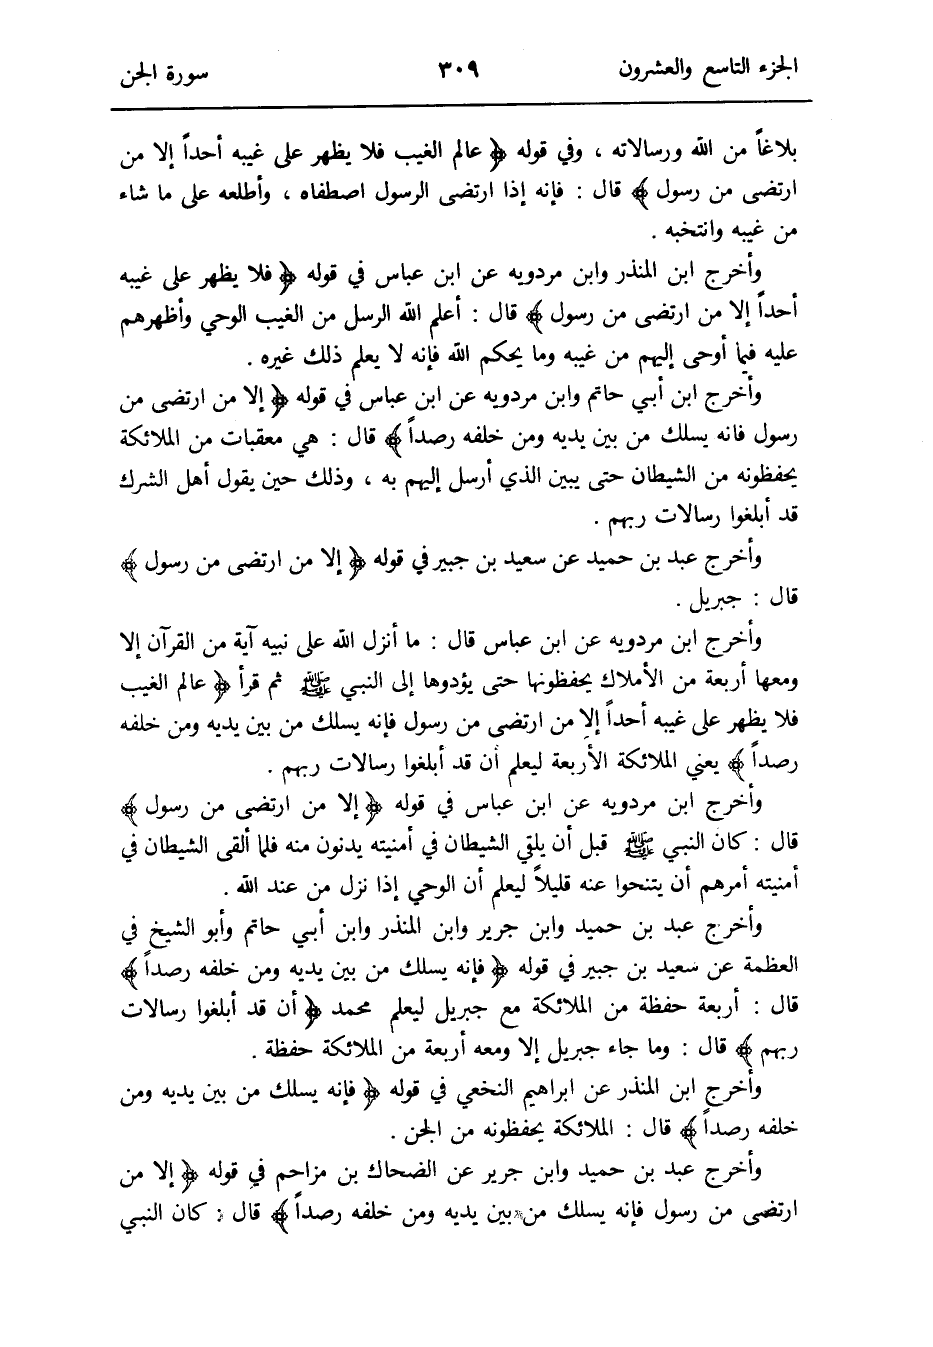 الجزء التاسع والعشرون ٣٠٩ سورة الجن
بلاغاً من الله ورسالاته ، وفي قوله ﴿ عالم الغيب فلا يظهر على غيبه أحداً إلا من
ارتضى من رسول ﴾ قال : فإنه إذا ارتضى الرسول اصطفاه ، وأطلعه على ما شاء
من غيبه وانتخبه .
وأخرج ابن المنذر وابن مردويه عن ابن عباس في قوله ﴿ فلا يظهر على غيبه
أحداً إلا من ارتضى من رسول ﴾ قال : أعلم الله الرسل من الغيب الوحي وأظهرهم
عليه فيما أوحى إليهم من غيبه وما يحكم الله فإنه لا يعلم ذلك غيره .
وأخرج ابن أبي حاتم وابن مردويه عن ابن عباس في قوله ﴿ إلا من ارتضى من
رسول فانه يسلك من بين يديه ومن خلفه رصداً ﴾ قال : هي معقبات من الملائكة
يحفظونه من الشيطان حتى يبين الذي أرسل إليهم به ، وذلك حين يقول أهل الشرك
قد أبلغوا رسالات ربهم .
وأخرج عبد بن حميد عن سعيد بن جبير في قوله ﴿ إلا من ارتضى من رسول ﴾
قال : جبريل .
وأخرج ابن مردويه عن ابن عباس قال : ما أنزل الله على نبيه آية من القرآن إلا
ومعها أربعة من الأملاك يحفظونها حتى يؤدوها إلى النبي ﷺ ثم قرأ ﴿ عالم الغيب
فلا يظهر على غيبه أحداً إلا من ارتضى من رسول فإنه يسلك من بين يديه ومن خلفه
رصداً ﴾ يعني الملائكة الأربعة ليعلم أن قد أبلغوا رسالات ربهم .
وأخرج ابن مردويه عن ابن عباس في قوله ﴿ إلا من ارتضى من رسول ﴾
قال : كان النبي ﷺ قبل أن يلقي الشيطان في أمنيته يدنون منه فلما ألقى الشيطان في
أمنيته أمرهم أن يتنحوا عنه قليلاً ليعلم أن الوحي إذا نزل من عند الله .
وأخرج عبد بن حميد وابن جرير وابن المنذر وابن أبي حاتم وأبو الشيخ في
العظمة عن سعيد بن جبير في قوله ﴿ فإنه يسلك من بين يديه ومن خلفه رصداً ﴾
قال : أربعة حفظة من الملائكة مع جبريل ليعلم محمد ﴿ أن قد أبلغوا رسالات
ربهم ﴾ قال : وما جاء جبريل إلا ومعه أربعة من الملائكة حفظة .
وأخرج ابن المنذر عن ابراهيم النخعي في قوله ﴿ فإنه يسلك من بين يديه ومن
خلفه رصداً ﴾ قال : الملائكة يحفظونه من الجن .
وأخرج عبد بن حميد وابن جرير عن الضحاك بن مزاحم في قوله ﴿ إلا من
ارتضى من رسول فإنه يسلك من بين يديه ومن خلفه رصداً ﴾ قال : كان النبي